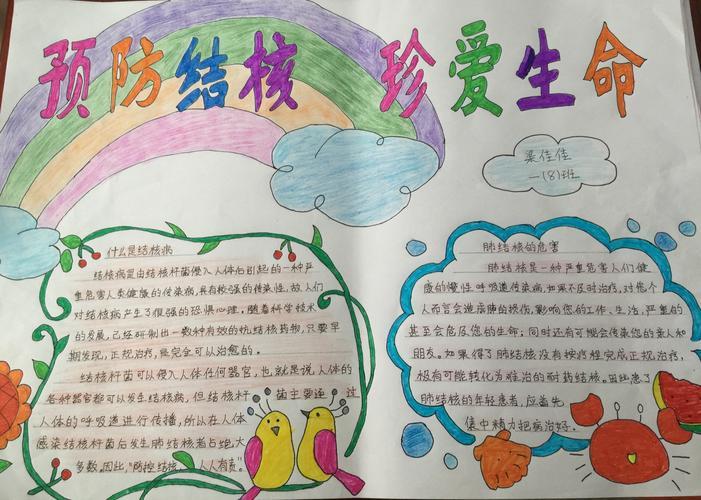 预防结核 珍爱生命
梁佳佳
一(8)班
什么是结核病
结核病是由结核杆菌侵入人体后引起的一种严
重危害人类健康的传染病,具有较强的传染性,故人们
对结核病产生了很强的恐惧心理,随着科学技术
的发展,已经研制出一数种有效的抗结核药物,只要早
期发现,正规治疗,是完全可以治愈的。
结核杆菌可以侵入人体任何器官,也就是说人体的
各种器官都可以发生结核病,但结核杆 菌主要通 过
人体的呼吸道进行传播,所以在人体
感染结核杆菌后发生肺结核者占绝大
多数。因此,"防控结核 人人有责"。
肺结核的危害
肺结核是一种严重危害人们健
康的慢性呼吸道传染病,如果不及时治疗,对个
人而言会造成肺的损伤,影响您的工作、生活,严重的
甚至会危及您的生命;同时还有可能会传染您的亲人和
朋友。如果得了肺结核没有按疗程完成正规治疗,
极有可能转化为难治的耐药结核。因此患了
肺结核的年轻患者,应首先
集中精力把病治好。